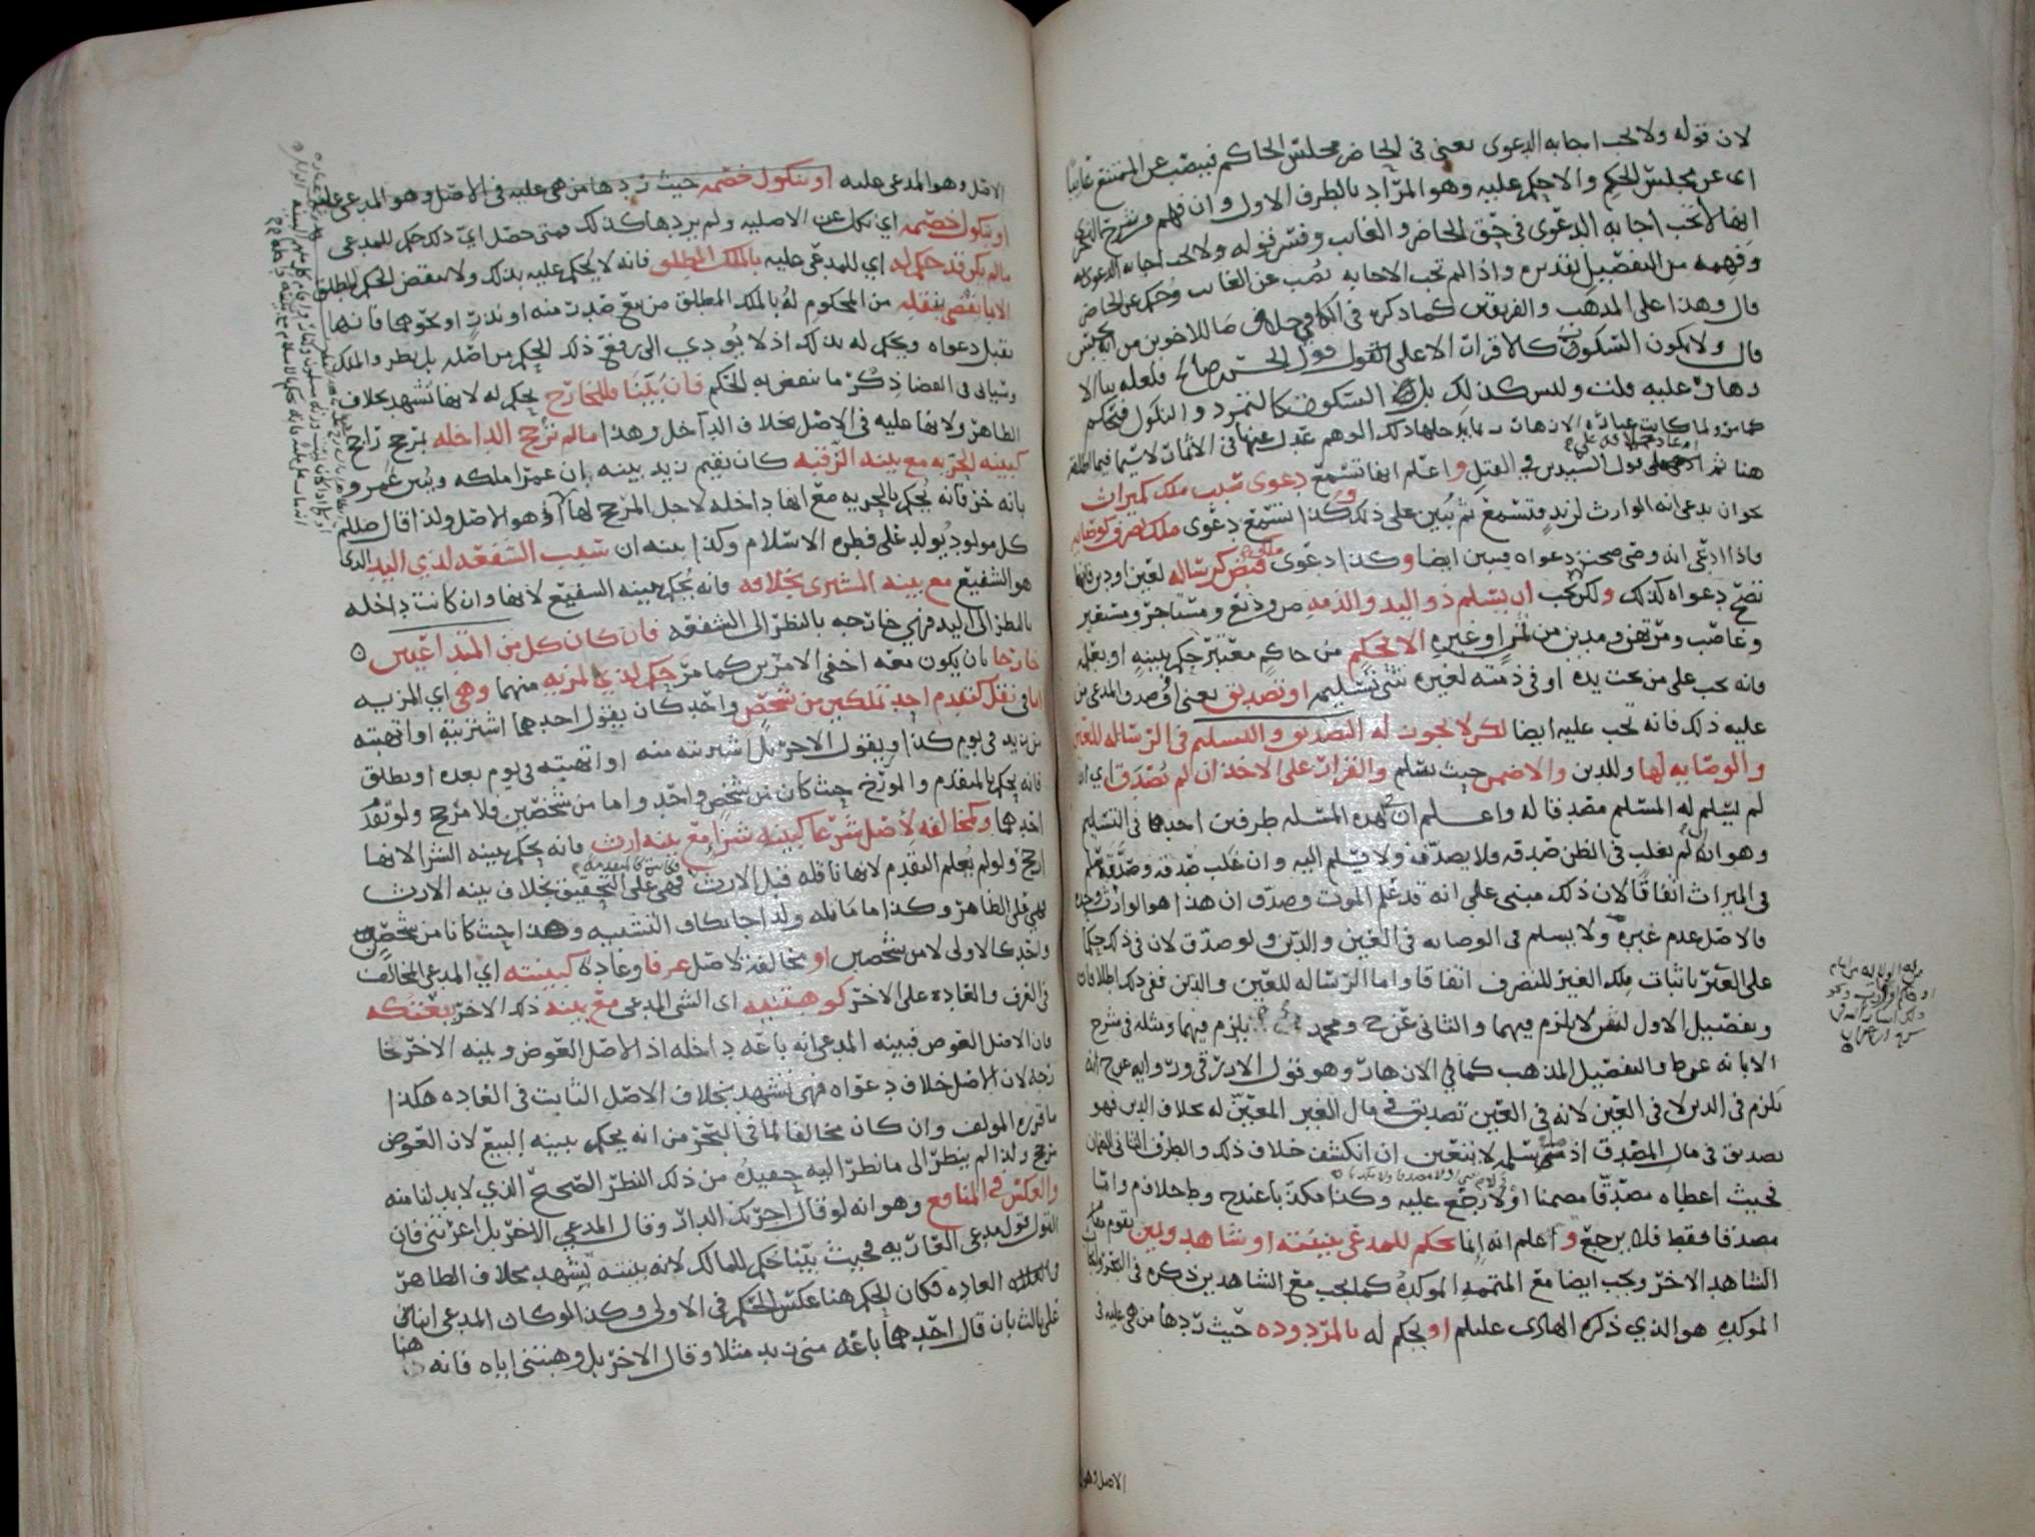 لان قوله ولا تجب اجابه الدعوى يعنى في الحاضر مجلس الحاكم فينصب عن الممتنع غايبا
اى عن مجلس الحكم والا حكم عليه وهو المراد بالطرف الاول وان فهم من شرح
ايضا لا تجب اجابة الدعوى في حق الحاضر والغايب وفسر قوله ولا تجب اجابه الدعوى به
وفهمه من التفصيل بقدره واذا لم تجب الاجابه نصب عن الغايب وحكم عن الحاضر
قال وهذا على المذهب والفريقين كما ذكره في الكافي خلاف ما للاخوين من انه يحبس
قال ولا يكون السكوت كالاقرار الا على القول قول الحسن بن صالح فلعله بنا لا
دهان عليه قلت وليس كذلك بل السكوت كالتمرد والنكول فيحكم
كما مر ولما كانت عبارة الازهار عدل عنها في الاثمار لا سيما فيما
هنا ثم قول السيدين في القتل واعلم انها تسمع دعوى سبب ملك كميراث
نحو ان يدعي انه الوارث لزيد فتسمع ثم يبين على ذلك وكذا تسمع دعوى ملك تصرف كوصايه
فاذا ادعى انه وصى صحت دعواه فيبين ايضا وكذا دعوى قبض كرساله لعين او دين فانها
تصح دعواه كذلك ولكن يجب ان يسلم ذو اليد والذمه من وديع ومستاجر ومستعير
وغاصب ومرتهن ومدين من ثمن او غيره الا لحكم من حاكم معتبر حكم ببينه او بعلمه
فانه يجب على من تحت يده او في ذمته لغيره شئ تسليمه او تصديق يعنى او صدق المدعى من
عليه ذلك فانه يجب عليه ايضا لكن لا يجوز له التصديق والتسليم في الرساله للعين
والوصايه لها وللدين والاضمن حيث سلم والقرار على الاخذ ان لم يصدق اي ان
لم يسلم له المسلم مصدقا له واعلم ان لهذه المسله طرفين احدهما في التسليم
وهو انه لم يغلب في الظن صدقه فلا يصدقه ولا يسلم اليه وان غلب صدقه وصدقه سلم
في الميراث اتفاقا لان ذلك مبنى على انه قد علم الموت وصدق ان هذا هو الوارث وحده
فالاصل عدم غيره ولا يسلم في الوصايه في العين والدين ولو صدق لان في ذلك حكما
على الغير باثبات ملك الغير للتصرف اتفاقا واما الرساله للعين والدين ففي ذلك اطلاقان
وتفصيل الاول لا يلزم فيهما والثاني عن ح ومحمد يلزم فيهما ومثله في شرح
الابانه عن ط والتفصيل المذهب كما في الازهار وهو قول الازرقى وروايه عن ح انه
يلزم في الدين لا في العين لانه في العين تصديق في مال الغير المعين له بخلاف الدين فهو
تصديق في مال المصدق اذ متى سلمه لا يتعين ان انكشف خلاف ذلك والطرف الثاني للضمان
فحيث اعطاه مصدقا مضمنا اولا رجع عليه وكذا مكذبا عند ح وط خلاف م واما
مصدقا فقط فلا يرجع واعلم انه انما يحكم للمدعى ببينته او شاهد ويمين يقوم مقام
الشاهد الاخر ويجب ايضا مع المتممه الموكده كما يجب مع الشاهدين ذكره في البحر
الموكده هو الذي ذكره الهادى عليلم او يحكم له بالمردوده حيث ردها من هي عليه في
الاصل وهو
الاصل وهو المدعى عليه او بنكول خصمه حيث ردها من هي عليه في الاصل وهو المدعى عليه
او نكول خصمه اي نكل عن الاصليه ولم يردها كذلك فمتى حصل اي ذلك حكم للمدعى
ما لم يكن قد حكم له اي للمدعى عليه بالملك المطلق فانه لا يحكم عليه بذلك ولا ينقض الحكم المطلق
الا بما يقضى بنقله من المحكوم له بالملك المطلق من بيع صدر منه او نذر او نحوهما فانها
تقبل دعواه ويحكم له بذلك اذ لا يودي الى رفع ذلك الحكم من اصله بل بطرو الملك
وسياتى في القضا ذكر ما ينقض به الحكم فان بينا فللخارج يحكم له لانها تشهد بخلاف
الظاهر ولانها عليه في الاصل بخلاف الداخل وهذا ما لم ترجح الداخله بمرجح راجح
كبينه الحريه مع بينه الرقيه كان يقيم زيد بينه ان عمرا ملكه ويبين عمرو
بانه حر فانه يحكم بالحريه مع انها داخله لاجل المرجح لها اذ هو الاصل ولذا قال صلعم
كل مولود يولد على فطرة الاسلام وكذا بينه ان سبب الشفعه لذي اليد الذى
هو الشفيع مع بينه المشترى بخلافه فانه يحكم ببينه الشفيع لانها وان كانت داخله
بالنظر الى اليد فهي خارجه بالنظر الى الشفعه فان كان كل من المتداعيين ٥
خارجا بان يكون معه اخفى الامرين كما مر حكم لذي المزيه منهما وهي اي المزيه
اما في نقل كتقدم احد تملكين من شخص واحد كان يقول احدهما اشتريته او اتهبته
من زيد في يوم كذا ويقول الاخر بل اشتريته منه او اتهبته في يوم بعده او يطلق
فانه يحكم بالمتقدم والمورخ حيث كان من شخص واحد واما من شخصين فلا مرجح ولو تقدم
احدهما وكمخالفه لاصل شرعا كبينه شرا مع بينه ارث فانه يحكم ببينه الشرا لانها
ارجح ولو لم يعلم التقدم لانها ناقله قبل الارث فهي على التحقيق بخلاف بينه الارث
فهي على الظاهر وكذا ما ماثله ولذا جا بكاف التشبيه وهذا حيث كانا من شخص
واحد كالاولى لا من شخصين او مخالفة لاصل عرفا وعاده كبينته اي المدعى المخالف
في العرف والعاده على الاخر كوهبتنيه اى الشى المدعى مع بينه ذلك الاخر بعتكه
فان الاصل العوض فبينه المدعى انه باعه داخله اذ الاصل العوض وبينه الاخر خا
رجه لان الاصل خلاف دعواه فهى تشهد بخلاف الاصل الثابت في العاده هكذا
ما قرره المولف وان كان مخالفا لما في البحر من انه يحكم ببينه البيع لان العوض
مرجح ولذا لم ينظر الى ما نظر اليه حفيده من ذلك النظر الصحيح الذي لا بد لنا منه
والعكس في المنافع وهو انه لو قال اجرتك الدار وقال المدعي الاخر بل اعرتني فان
القول قول مدعي العاريه فحيث بينا حكم للمالك لانه ببينته يشهد بخلاف الظاهر
العاده فكان الحكم هنا عكس الحكم في الاولى وكذا لو كان المدعى اثنان
على ثالث بان قال احدهما باعه منى زيد مثلا وقال الاخر بل وهبتنى اياه فانه هنا